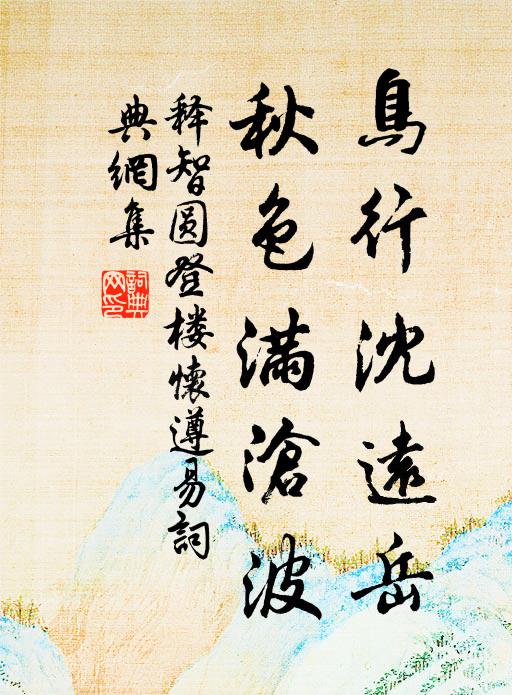 鳥行沈遠岳
秋色滿滄波
释智圆登楼懷遵易詞
典網集
詞典
网印